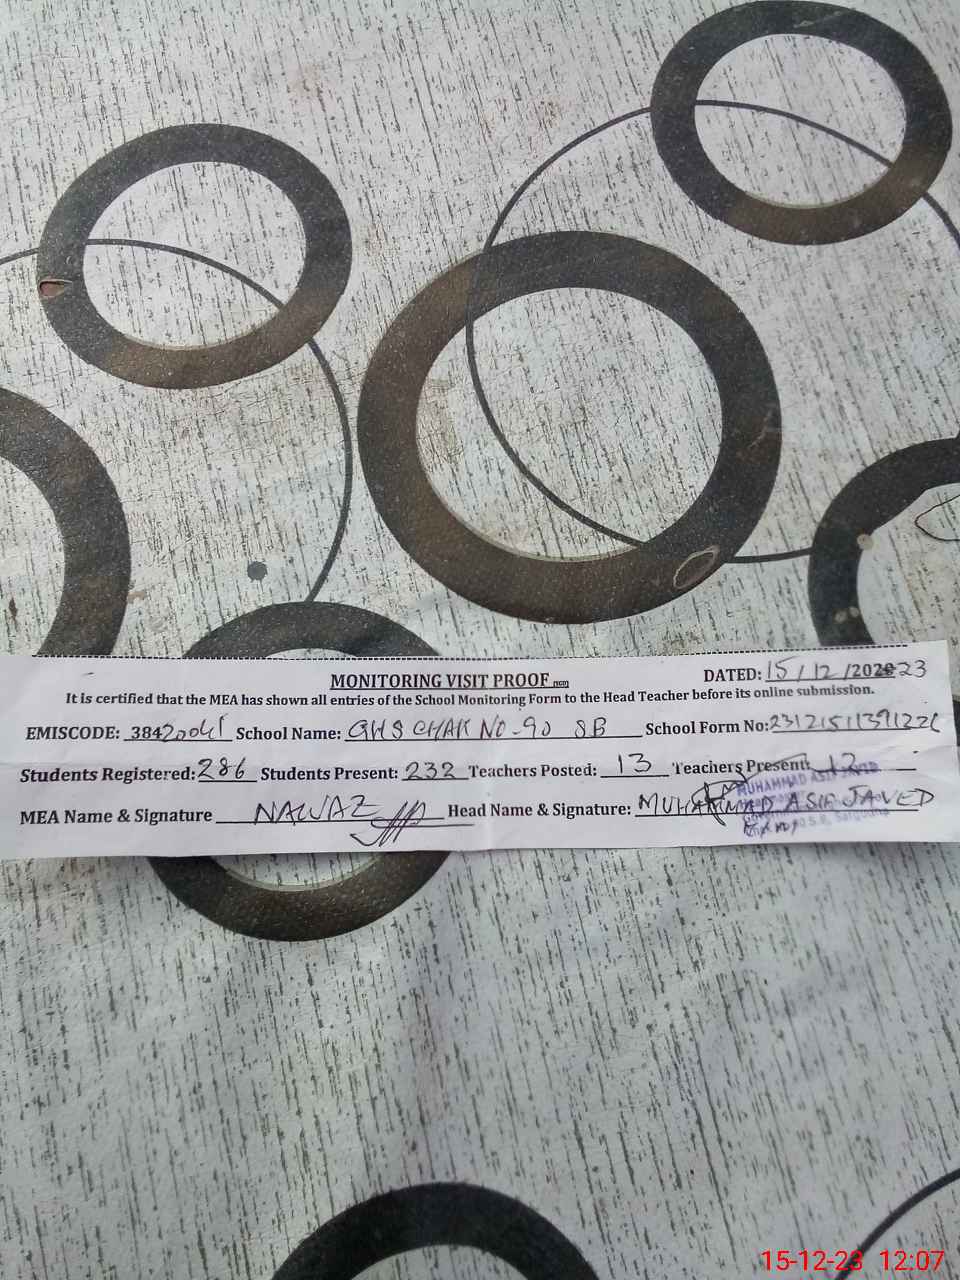 MONITORING VISIT PROOF DATED: 15/12/2023
It is certified that the MEA has shown all entries of the School Monitoring Form to the Head Teacher before its online submission.
EMISCODE: 38420041 School Name: GHS CHAK NO-90 SB School Form No:
Students Registered: 286 Students Present: 232 Teachers Posted: 13 Teachers Present: 12
MEA Name & Signature NAWAZ Head Name & Signature: MUHAMMAD ASIF JAVED
MUHAMMAD ASIF JAVED
15-12-23 12:07